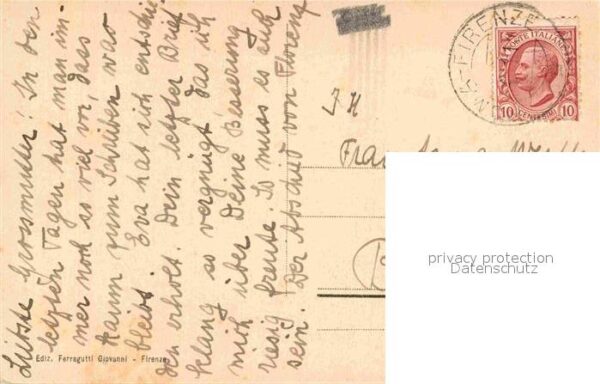 Liebste Grossmutter! In den
letzten Tagen hat man im-
mer noch so viel vor, dass
kaum zum Schreiben war
bleibt. Eva hat sich entschie
den erholt. Dein letzter Brief
klang so vergnügt das ich
mich über Deine Besserung
riesig freute. So muss es auch
sein. Der Abschied von Florenz
I H
Frau
FIRENZE
POSTE ITALIANE
10 CENTESIMI 10
privacy protection
Datenschutz
Ediz. Ferragutti Giovanni - Firenze